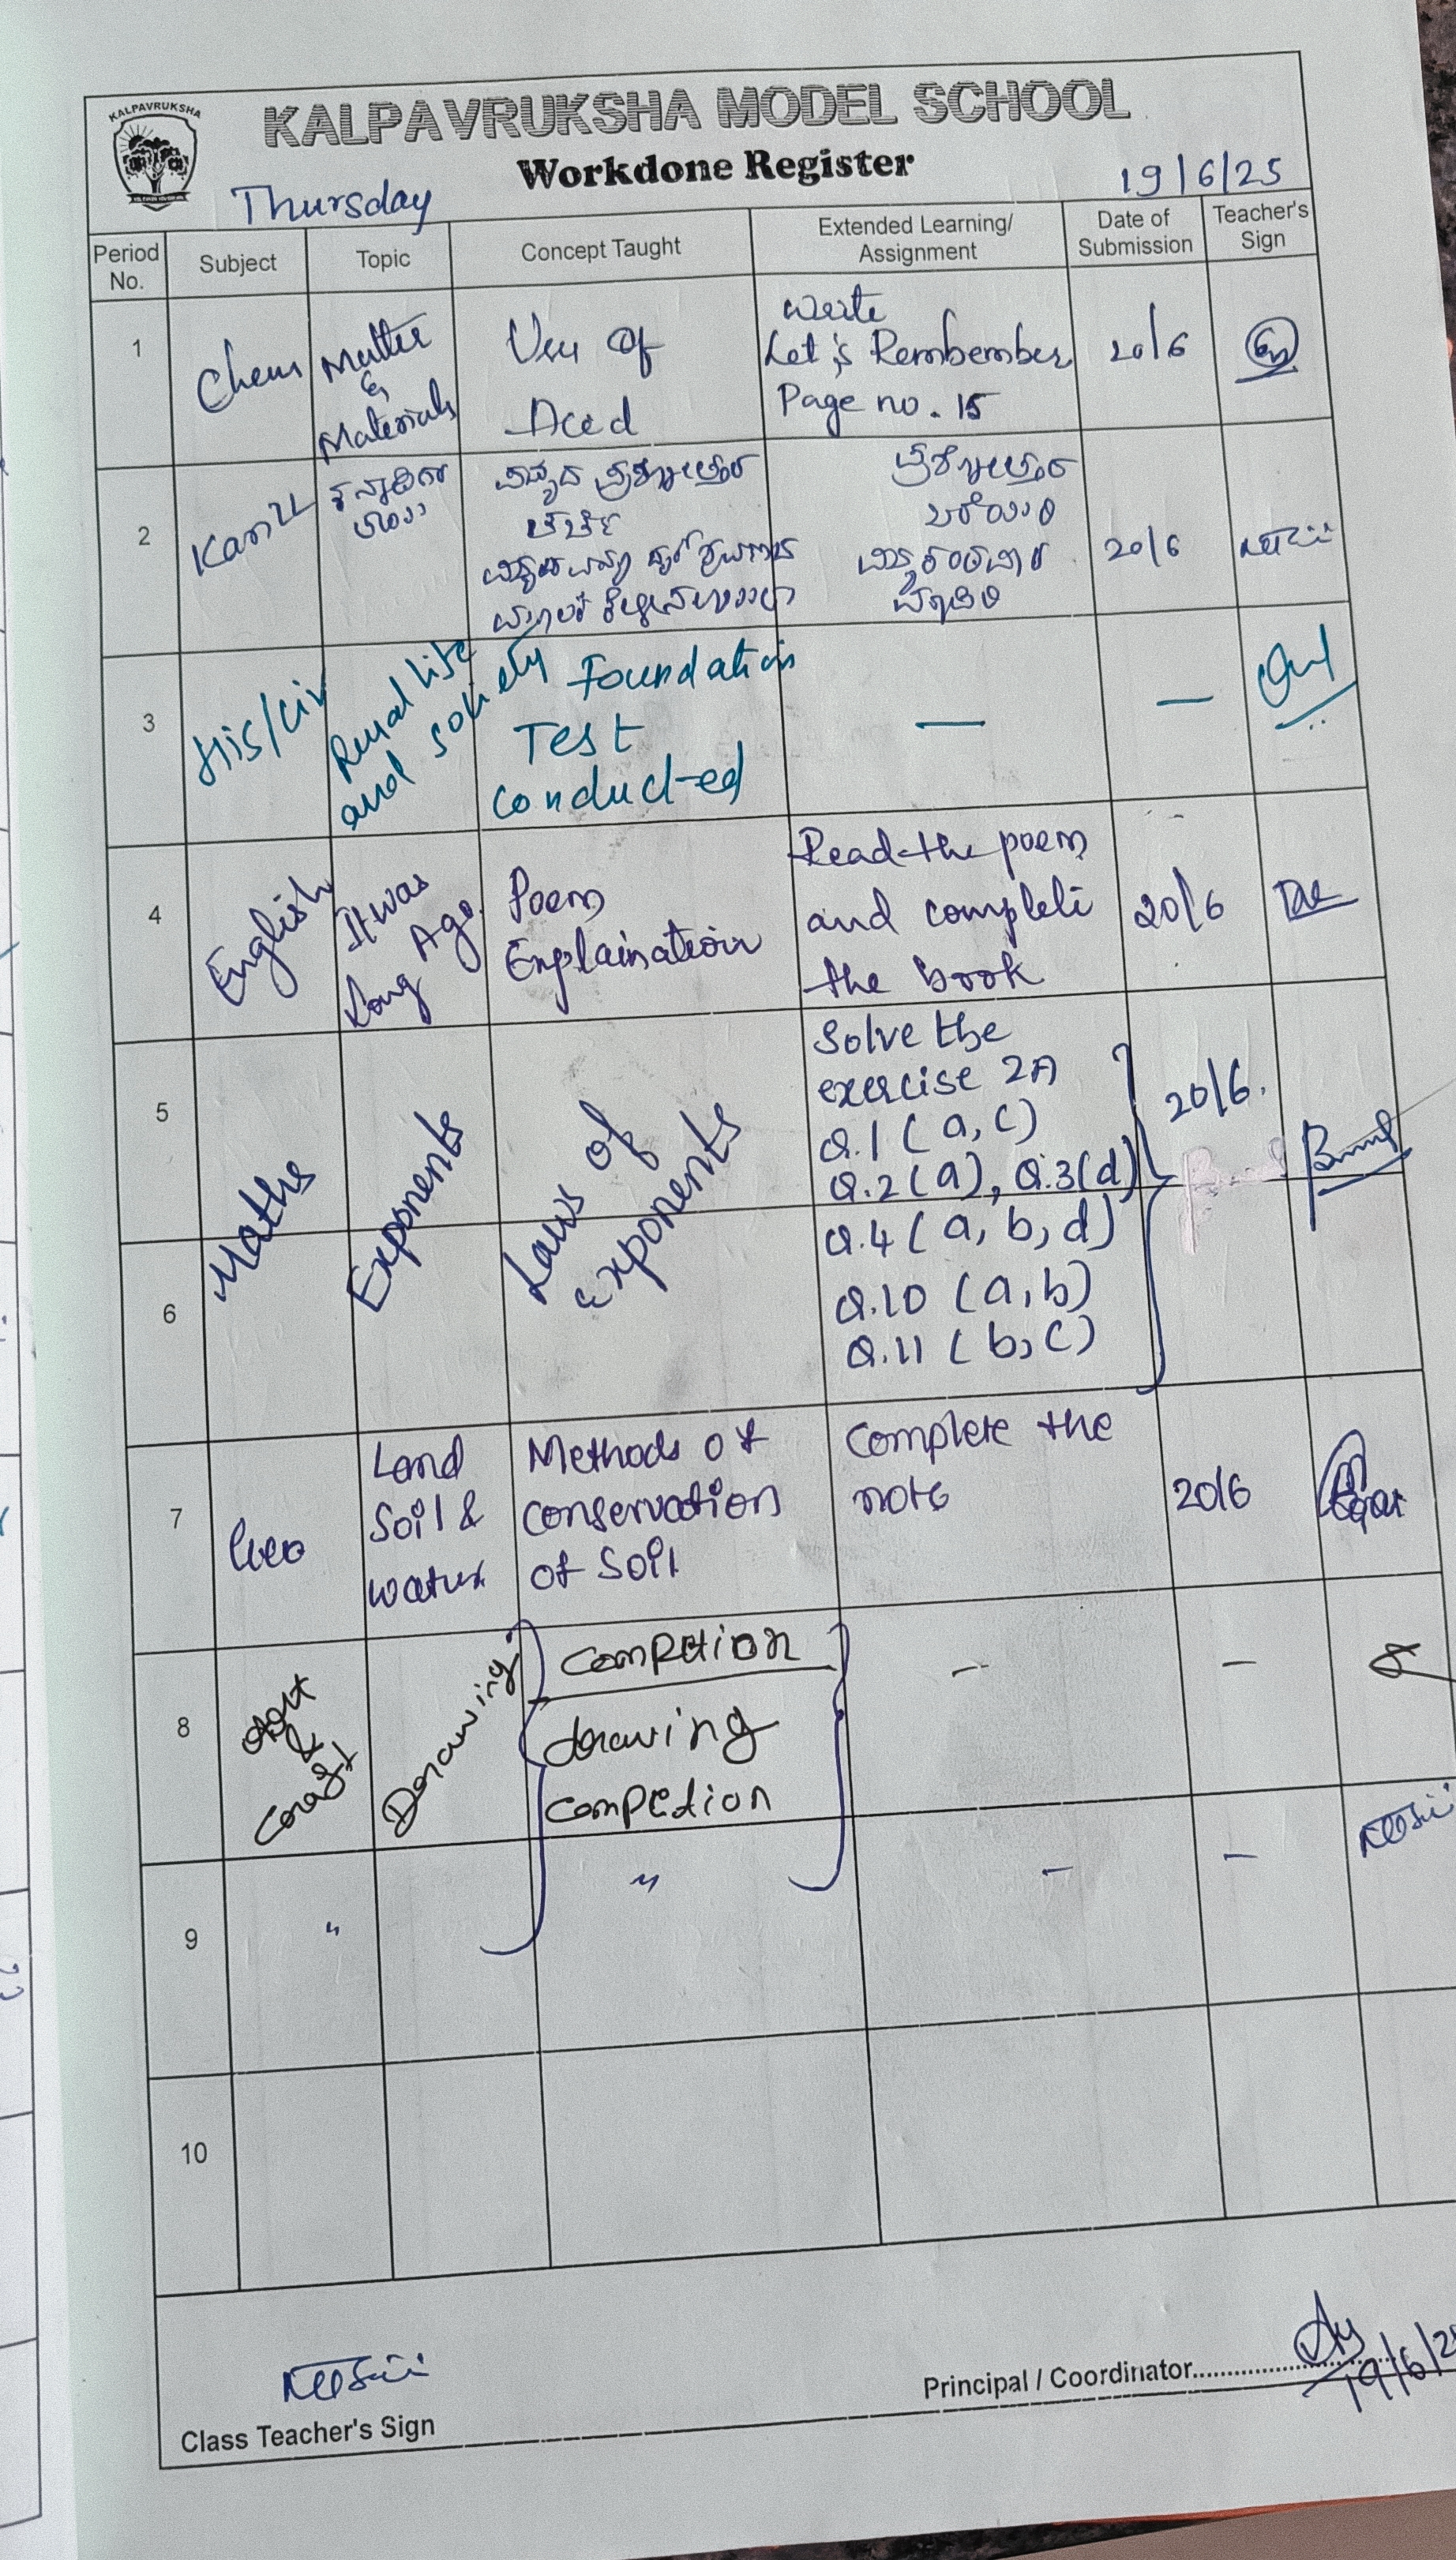 KALPAVRUKSHA
KALPAVRUKSHA MODEL SCHOOL
Workdone Register
Thursday
19/6/25
Period No.
Subject
Topic
Concept Taught
Extended Learning/
Assignment
Date of
Submission
Teacher's
Sign
1
Chem
Matter
&
Materials
Use of
Acid
Write
Let's Rembember
Page no. 15
20/6
2
ಚರ್ಚೆ
ಪ್ರಶ್ನೋತ್ತರ
ಬರೆಯಿರಿ
20/6
3
His/Civ
Rural life
and society
Foundation
Test
conducted
—
—
4
English
It was
Long Ago
Poem
Explaination
Read the poem
and complete
the book
20/6
5
6
Maths
Exponents
Laws of
exponents
Solve the
exercise 2A
Q.1 (a, c)
Q.2 (a), Q.3(d)
Q.4 (a, b, d)
Q.10 (a, b)
Q.11 (b, c)
20/6.
7
Geo
Land
Soil &
water
Methods of
conservation
of soil
Complete the
note
20/6
8
Art
&
Craft
Drawing
drawing
–
–
9
"
"
–
–
10
Class Teacher's Sign
Principal / Coordinator
19/6/25